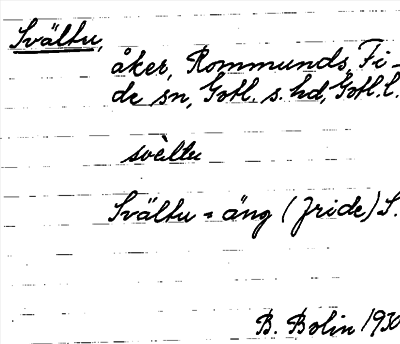 Svältu,
åker, Rommunds, Fi-
de sn, Gotl. s. hd, Gotl. l.
svèltu
Svältu = äng (Fride) S.
B. Bolin 1930